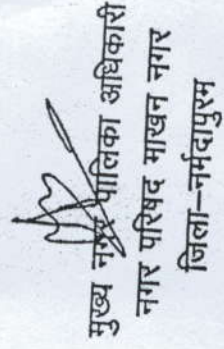 मुख्य नगर पालिका अधिकारी
नगर परिषद माखन नगर
जिला–नर्मदापुरम